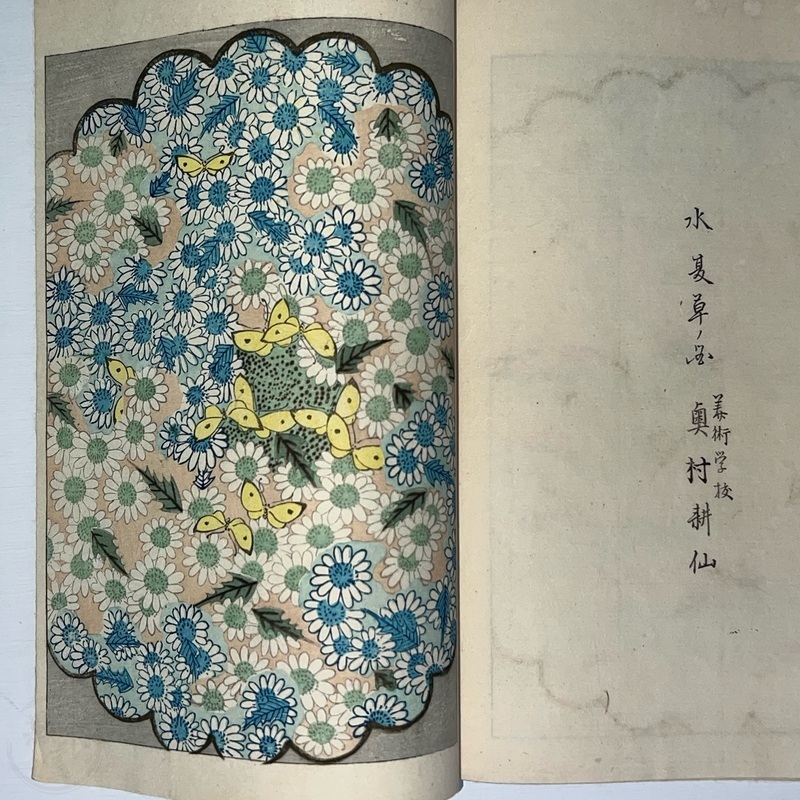 水夏草ノ図
美術学校
奥村耕仙